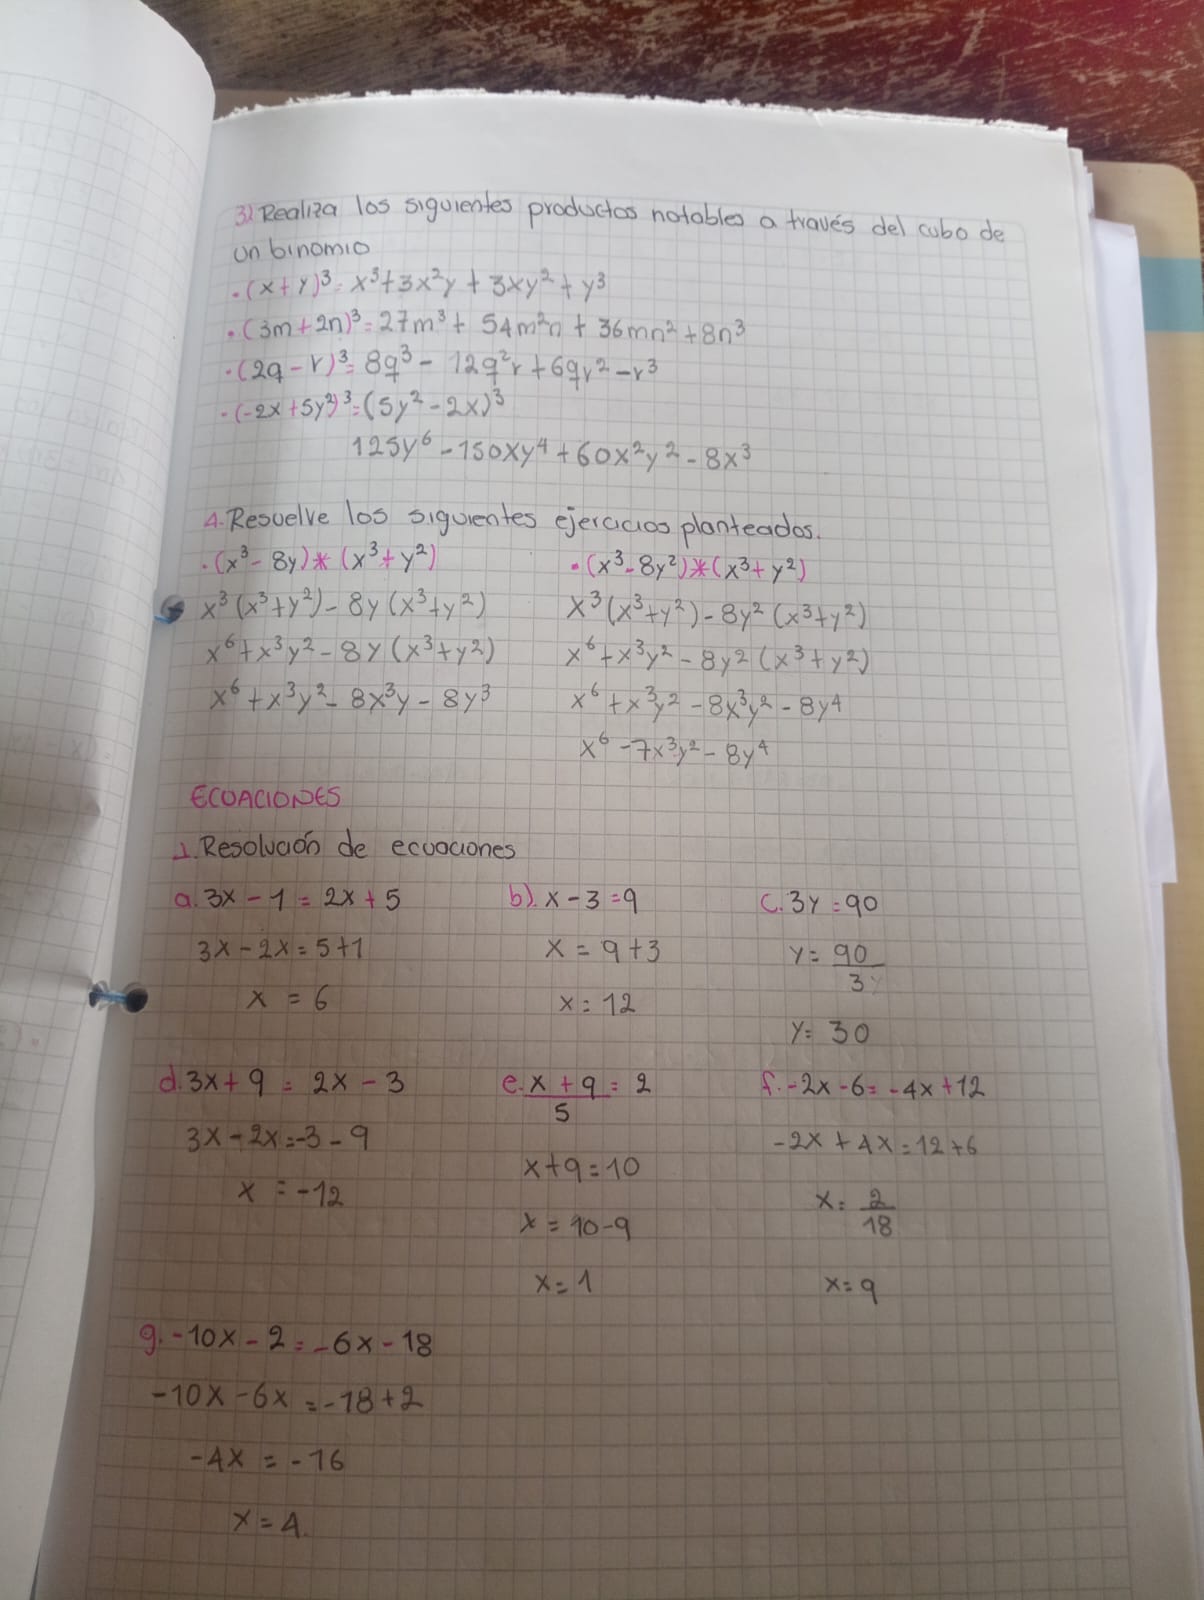 3) Realiza los siguientes productos notables a través del cubo de
un binomio
·(x+y)³= x³+3x²y + 3xy² + y³
·(3m+2n)³=27m³ + 54m²n + 36mn² +8n³
·(2q-r)³= 8q³ - 12q²r + 6qr² - r³
·(-2x+5y²)³=(5y² - 2x)³
125y⁶ - 150xy⁴ + 60x²y² - 8x³
4. Resuelve los siguientes ejercicios planteados.
·(x³- 8y)*(x³+y²) ·(x³-8y²)*(x³+y²)
x³(x³+y²) - 8y(x³+y²) x³(x³+y²) - 8y²(x³+y²)
x⁶+x³y² - 8y(x³+y²) x⁶+x³y² - 8y²(x³+y²)
x⁶+x³y² - 8x³y - 8y³ x⁶+x³y² - 8x³y² - 8y⁴
x⁶ - 7x³y² - 8y⁴
ECUACIONES
1. Resolución de ecuaciones
a. 3x - 1 = 2x + 5 b). x - 3 = 9 c. 3y = 90
3x - 2x = 5+1 x = 9+3 y = 90/3
x = 6 x = 12 y = 30
d. 3x + 9 = 2x - 3 e. x + 9 / 5 = 2 f. -2x - 6 = -4x + 12
3x - 2x = -3 - 9 x+9 = 10 -2x + 4x = 12+6
x = -12 x = 10-9 x = 2/18
x = 1 x = 9
g. -10x - 2 = -6x - 18
-10x - 6x = -18+2
-4x = -16
x = 4.